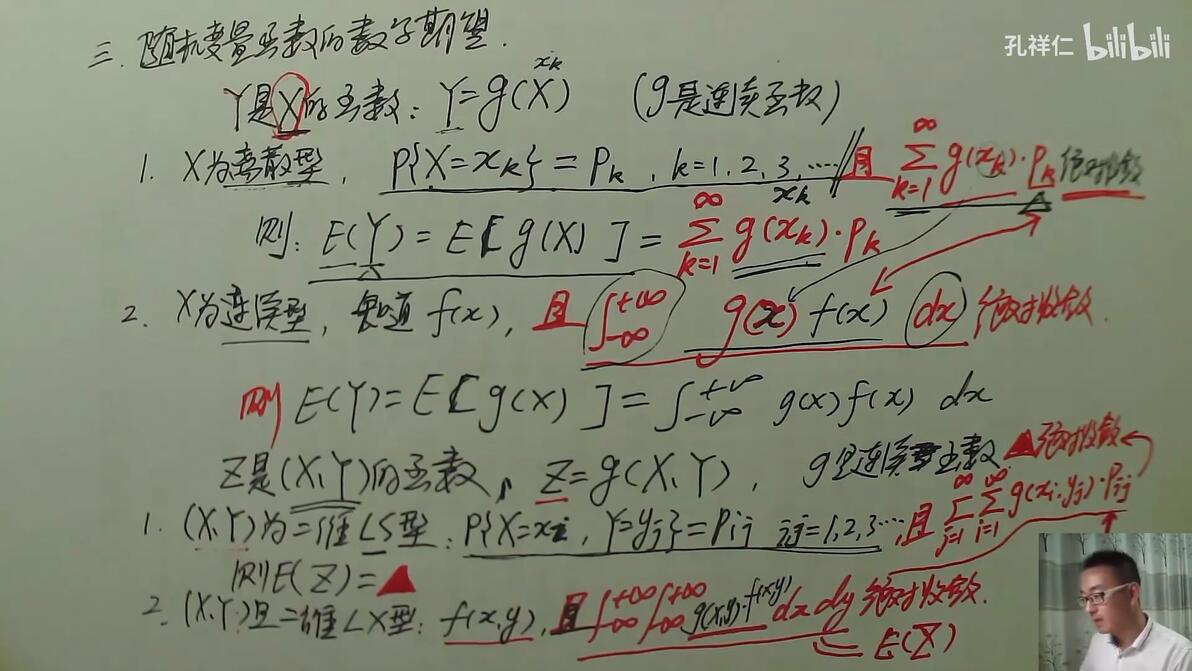 孔祥仁 bilibili
三. 随机变量函数的数学期望.
Y是X的函数: Y=g(X) (g是连续函数)
xk
1. X为离散型, P{X=xk}=Pk, k=1,2,3,… 且 ∑_{k=1}^{∞} g(xk)·Pk 绝对收敛
xk
则: E(Y)=E[g(X)]=∑_{k=1}^{∞} g(xk)·Pk
2. X为连续型, 知道 f(x), 且 ∫_{-∞}^{+∞} g(x) f(x) dx 绝对收敛.
则 E(Y)=E[g(X)]=∫_{-∞}^{+∞} g(x)f(x) dx
Z是(X,Y)的函数, Z=g(X,Y), g是连续函数 ▲绝对收敛
1. (X,Y)为二维LS型: P{X=xi, Y=yj}=Pij i,j=1,2,3…, 且 ∑_{j=1}^{∞} ∑_{i=1}^{∞} g(xi,yj)·Pij
则E(Z)=▲
2. (X,Y)是二维LX型: f(x,y), 且 ∫_{-∞}^{+∞}∫_{-∞}^{+∞} g(x,y)·f(x,y) dx dy 绝对收敛.
= E(Z)